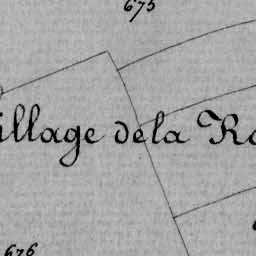 675
illage de la Ro
676